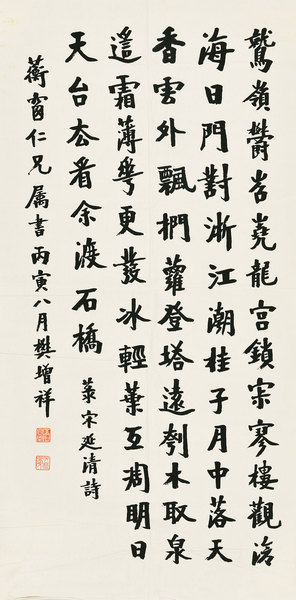 鷲嶺鬱岧嶢龍宮鎖寂寥樓觀滄
海日門對浙江潮桂子月中落天
香雲外飄捫蘿登塔遠刳木取泉
遙霜薄華更發冰輕葉互凋明日
天台去看余渡石橋 菉宋延清詩
蘅窗仁兄屬書丙寅八月樊增祥